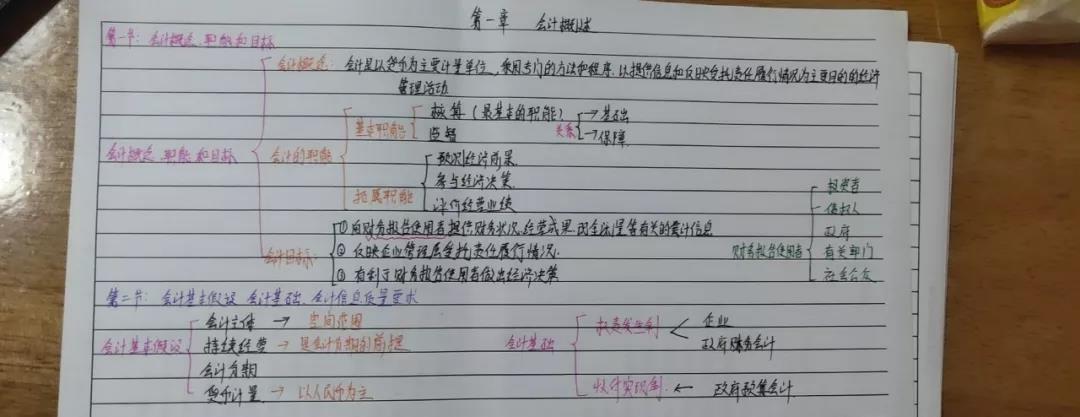 第一章 会计概述
第一节：会计概念、职能和目标
会计概念：会计是以货币为主要计量单位，采用专门的方法和程序，以提供信息和反映受托责任履行情况为主要目的的经济
管理活动
会计概念、职能和目标
会计的职能
基本职能
核算（最基本的职能）
监督
关系
→基础
→保障
拓展职能
预测经济前景
参与经济决策
评价经营业绩
会计目标：
① 向财务报告使用者提供财务状况、经营成果、现金流量等有关的会计信息
② 反映企业管理层受托责任履行情况
③ 有利于财务报告使用者做出经济决策
财务报告使用者
投资者
债权人
政府
有关部门
社会公众
第二节：会计基本假设、会计基础、会计信息质量要求
会计基本假设
会计主体 → 空间范围
持续经营 → 是会计分期的前提
会计分期
货币计量 → 以人民币为主
会计基础
权责发生制
企业
政府财务会计
收付实现制 ← 政府预算会计